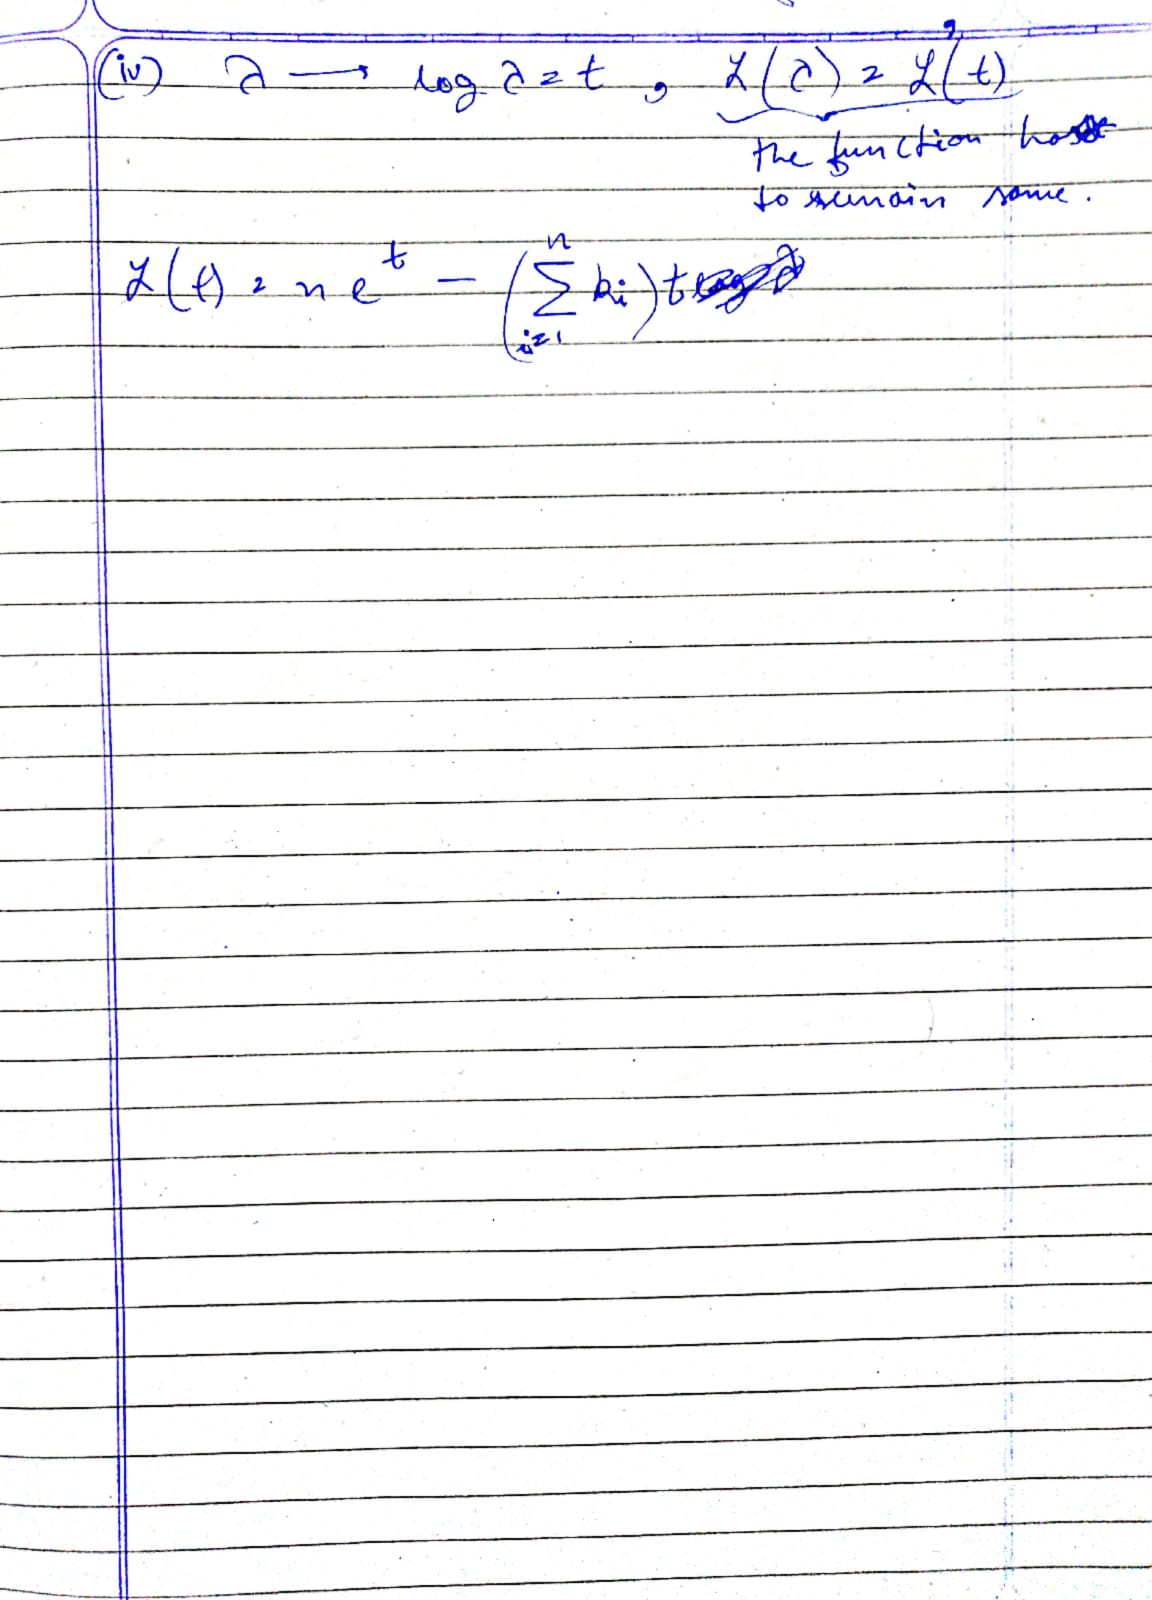 (iv) λ → log λ = t , L(λ) = L'(t)
the function has
to remain same.
L(t) = n e^t − (∑_{i=1}^{n} k_i) t